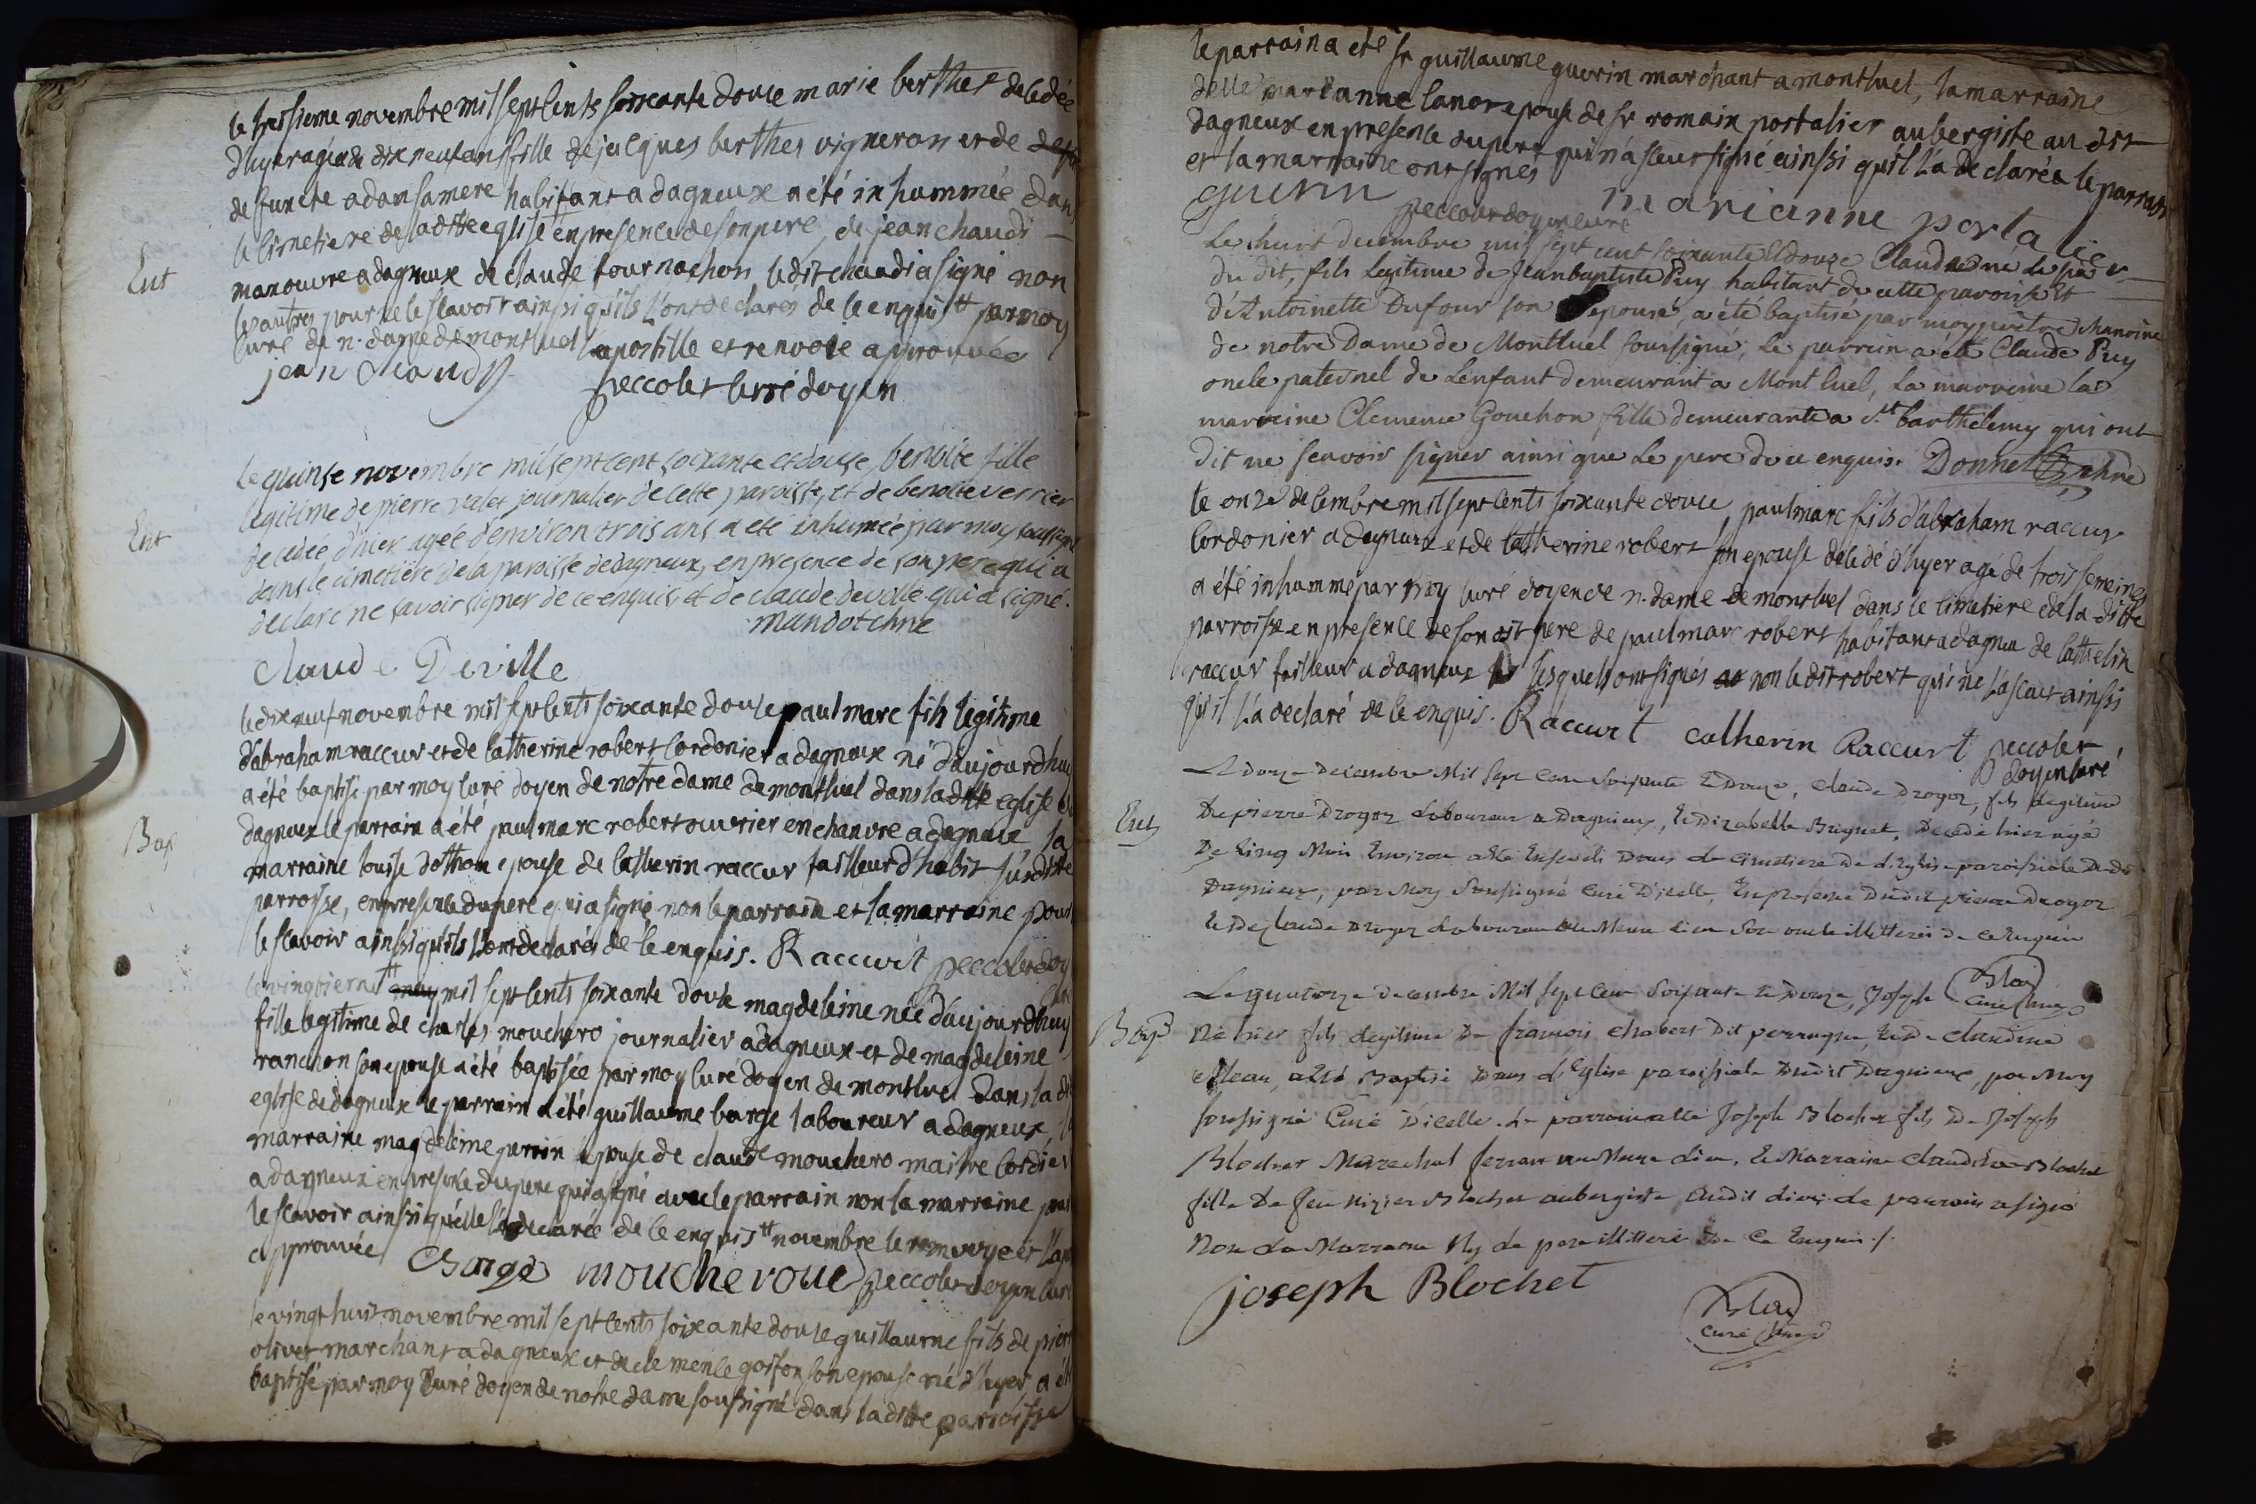 le troisieme novembre mil sept cents soixante douce marie berthet decedée
d'hyer agée de dix neuf ans fille de jacques berthet vigneron et de
defuncte adam sa mere habitant a dagneux a été inhummée dans
le cimetiere de la ditte eglise en presence de son pere, de jean chaudi
Ent
manouvre a dagneux de claude tournachon le dit chaudi a signé non
les autres pour ne le scavoir ainsi qu'ils l'ont declarés de ce enquis tt par moy
curé de n. dame de montluel apostille et renvoie approuvées
jean Chaudy peccolet curé doyen
le quinse novembre mil sept cent soixante et douse, benoite fille
legitime de pierre valet journalier de cette paroisse, et de benoite verrier
Ent
decedée d'hier agée d'environ trois ans a été inhumée par moy soussigné
dans le cimetière de la paroisse de dagneux, en presence de son pere qui a
declaré ne savoir signer de ce enquis et de claude deville qui a signé.
mandot chne
Claude Deville
le dix neuf novembre mil sept cents soixante douce paul marc fils legitime
d'abraham raccur et de catherine robert cordonier a dagneux né d'aujourdhuy
a été baptisé par moy curé doyen de notre dame de montluel dans la ditte eglise de
Bap
dagneux le parrain a été paul marc robert ouvrier en chanvre a dagneux, la
marraine louise dothon epouse de catherin raccur tailleur d'habit susditte
parroisse, en presence du pere qui a signé non le parrain et la marraine pour
le scavoir ainsi qu'ils l'ont declarés de ce enquis. Raccurt peccolet doy
le vingtieme tt may mil sept cents soixante douce magdeleine née d'aujourdhuy
fille legitime de charles mouchero journalier a dagneux et de magdeleine
ranchon son epouse a été baptisée par moy curé doyen de montluel dans la d
eglise de dagneux le parrain a été guillaume barge laboureur a dagneux, la
marraine magdeleine perrin epouse de claude mouchero maitre cordier
a dagneux en presence du pere qui a signé avec le parrain non la marraine pour
le scavoir ainsi qu'elle l'a declarée de ce enquis tt novembre le renvoye et
approuvée Barge moucheroue peccolet doyen curé
le vingt huit novembre mil sept cents soixante douce guillaume fils de pier
olivet marchant a dagneux et de clemence goiffon son epouse né d'hyer, a été
baptisé par moy curé doyen de notre dame soussigné dans la ditte parroisse
le parrain a eté sr guillaume guerin marchant a montluel, la marraine
delle marianne lanore epouse de sr romain portalier aubergiste au dit
dagneux en presence du pere qui n'a sceut signé ainssi qu'il l'a declaré le parrain
et la marraine ont signés
guerin marianne portalier
peccolet doyen curé
Le huit decembre mil sept cent soixante et douze Claude né le
du dit, fils legitime de Jean baptiste Puy habitant de cette paroisse et
d'Antoinette Dufour son epouse, a été baptisé par moy pretre chanoine
de notre Dame de Montluel soussigné, le parrein a été Claude Puy
oncle paternel de l'enfant demeurant a Montluel, la marreine la
marreine Clemence Gouchon fille demeurante a st barthelemy qui ont
dit ne scavoir signer ainsi que le pere de ce enquis. Donnet chne
le onze decembre mil sept cents soixante douce, paul marc fils d'abraham raccur
cordonier a dagneux et de catherine robert son epouse decedé d'hyer agé de trois semeines
a été inhummé par moy curé doyen de n. dame de montluel dans le cimetiere de la ditte
parroisse en presence de son dit pere de paul marc robert habitant a dagneux de catherin
raccur tailleur a dagneux lesquels ont signés non le dit robert qui ne l'a sceut ainssi
qu'il l'a declaré de ce enquis. Raccurt catherin Raccurt peccolet
doyen curé
Le douze decembre mil sept cent soixante et douze, claude Drogoz, fils legitime
Ent
de pierre Drogoz laboureur a Dagnieux, et d'izabelle Brignet, decedé hier agé
de cinq mois environ a été enseveli dans le cimetiere de l'Eglise paroissiale de
Dagnieux, par moy soussigné curé d'icelle, en presence dudit pierre Drogoz
et de claude Drogoz laboureur du meme lieu son oncle illitterés de ce enquis
Blay
curé
Le quatorze decembre mil sept cent soixante et douze, Joseph
Bap
né hier fils legitime de francois chabert dit perruque et de claudine
a été Baptisé dans l'Eglise paroissiale dudit Dagnieux, par moy
soussigné curé d'icelle. Le parrain a été Joseph Blochet fils de Joseph
Blochet Marechal ferrant au meme lieu, et marraine claudine Blochet
fille de feu nizier Blochet aubergiste dudit lieu. le parrain a signé
non la Marraine ny le pere illitteré de ce enquis./.
joseph Blochet
Blay
curé